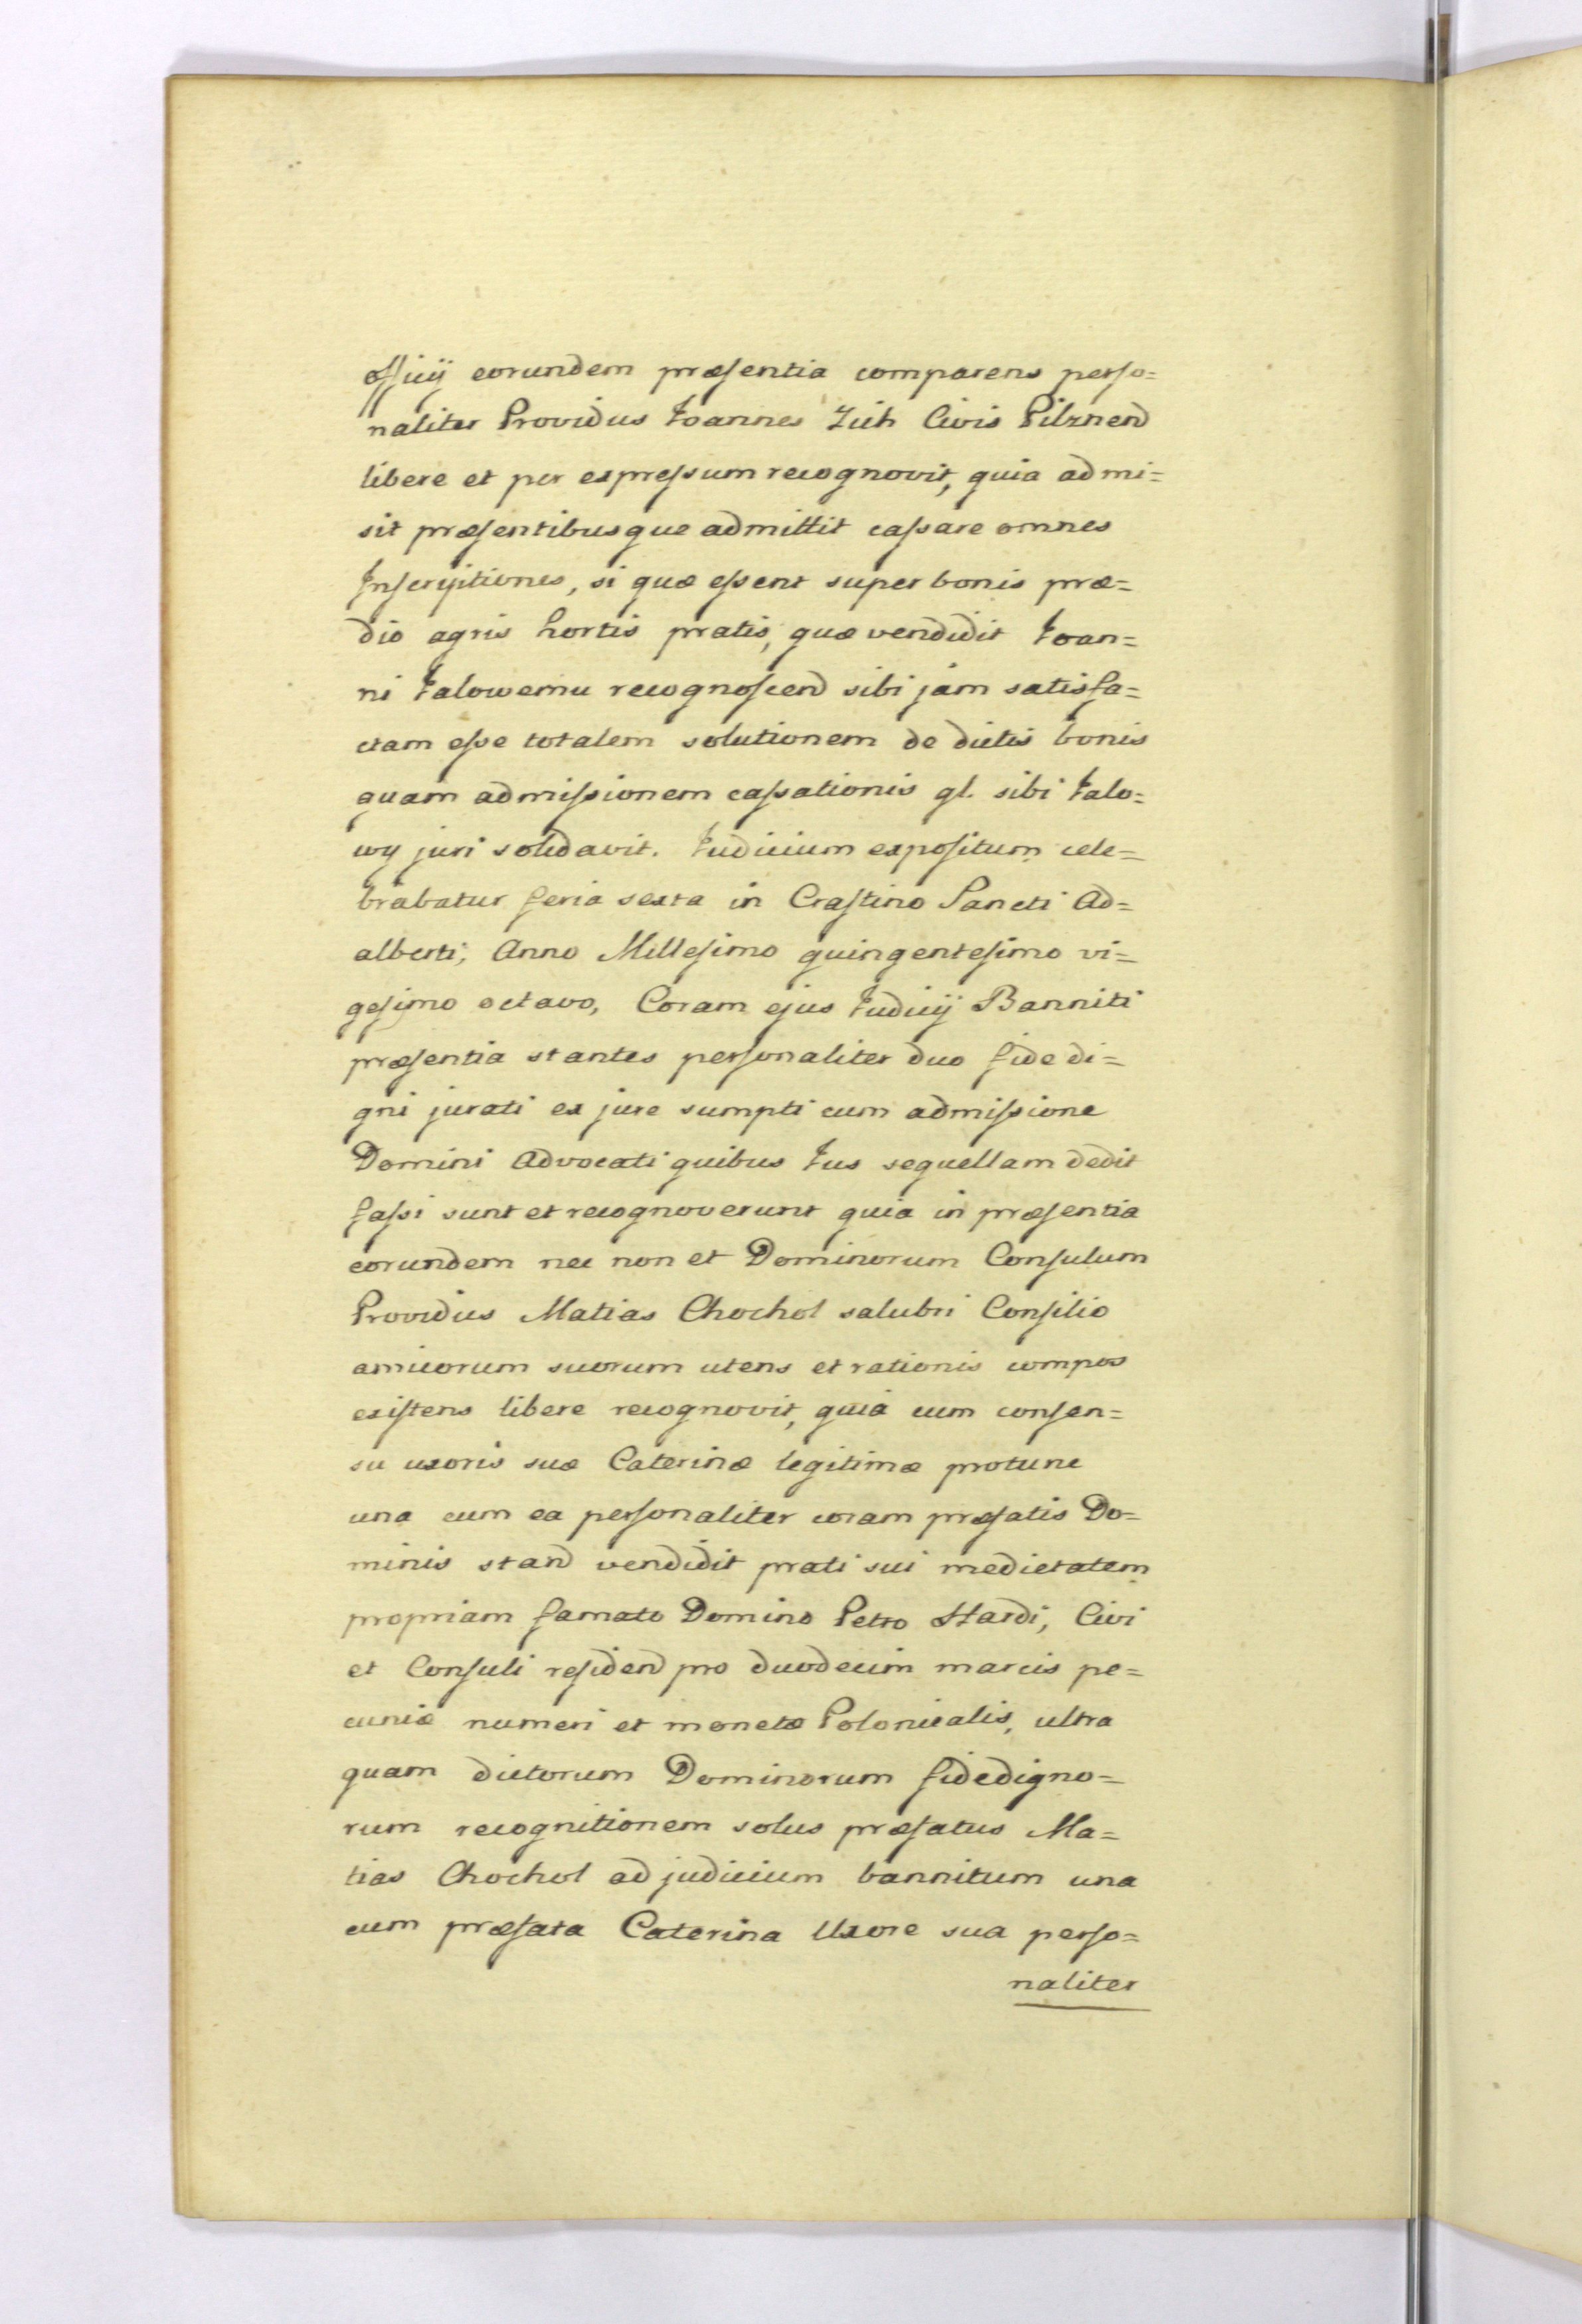 officij eorundem præsentia comparens perso=
naliter Providus Joannes Zich Civis Pilznend
libere et per expressum recognovit, quia admi=
sit præsentibusque admittit cassare omnes
Inscrypitiones, si quæ essent super bonis præ=
dio agris hortis pratis, quæ vendidit Joan=
ni Jalowemu recognoscend sibi jam satisfa=
ctam esse totalem solutionem de dictis bonis
quam admissionem cassationis gl. sibi Jalo=
wy juri solidavit. Judicium expositum cele=
brabatur feria sexta in Crastino Sancti Ad=
alberti, Anno Millesimo quingentesimo vi=
gesimo octavo, Coram ejus Judicij Banniti
præsentia stantes personaliter duo fide di=
gni jurati ex jure sumpti cum admissione
Domini Advocati quibus Jus sequellam dedit
fassi sunt et recognoverunt quia in præsentia
eorundem nec non et Dominorum Consulum
Providus Matias Chochol salubri Consilio
amicorum suorum utens et rationis compos
existens libere recognovit, quia cum consen=
su uxoris suæ Caterinæ legitimæ protunc
una cum ea personaliter coram præfatis Do=
minis stand vendidit prati sui medietatem
propriam famato Domino Petro Hardi, Civi
et Consuli residend pro duodecim marcis pe=
cuniæ numeri et monetæ Polonicalis, ultra
quam dictorum Dominorum fidedigno=
rum recognitionem solus præfatus Ma=
tias Chochol ad judicium bannitum una
cum præfata Caterina Uxore sua perso=
naliter